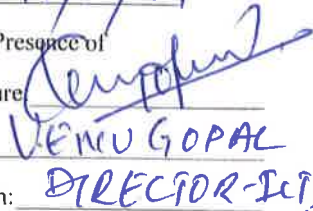 Presence of
ure
VENU GOPAL
n: DIRECTOR-